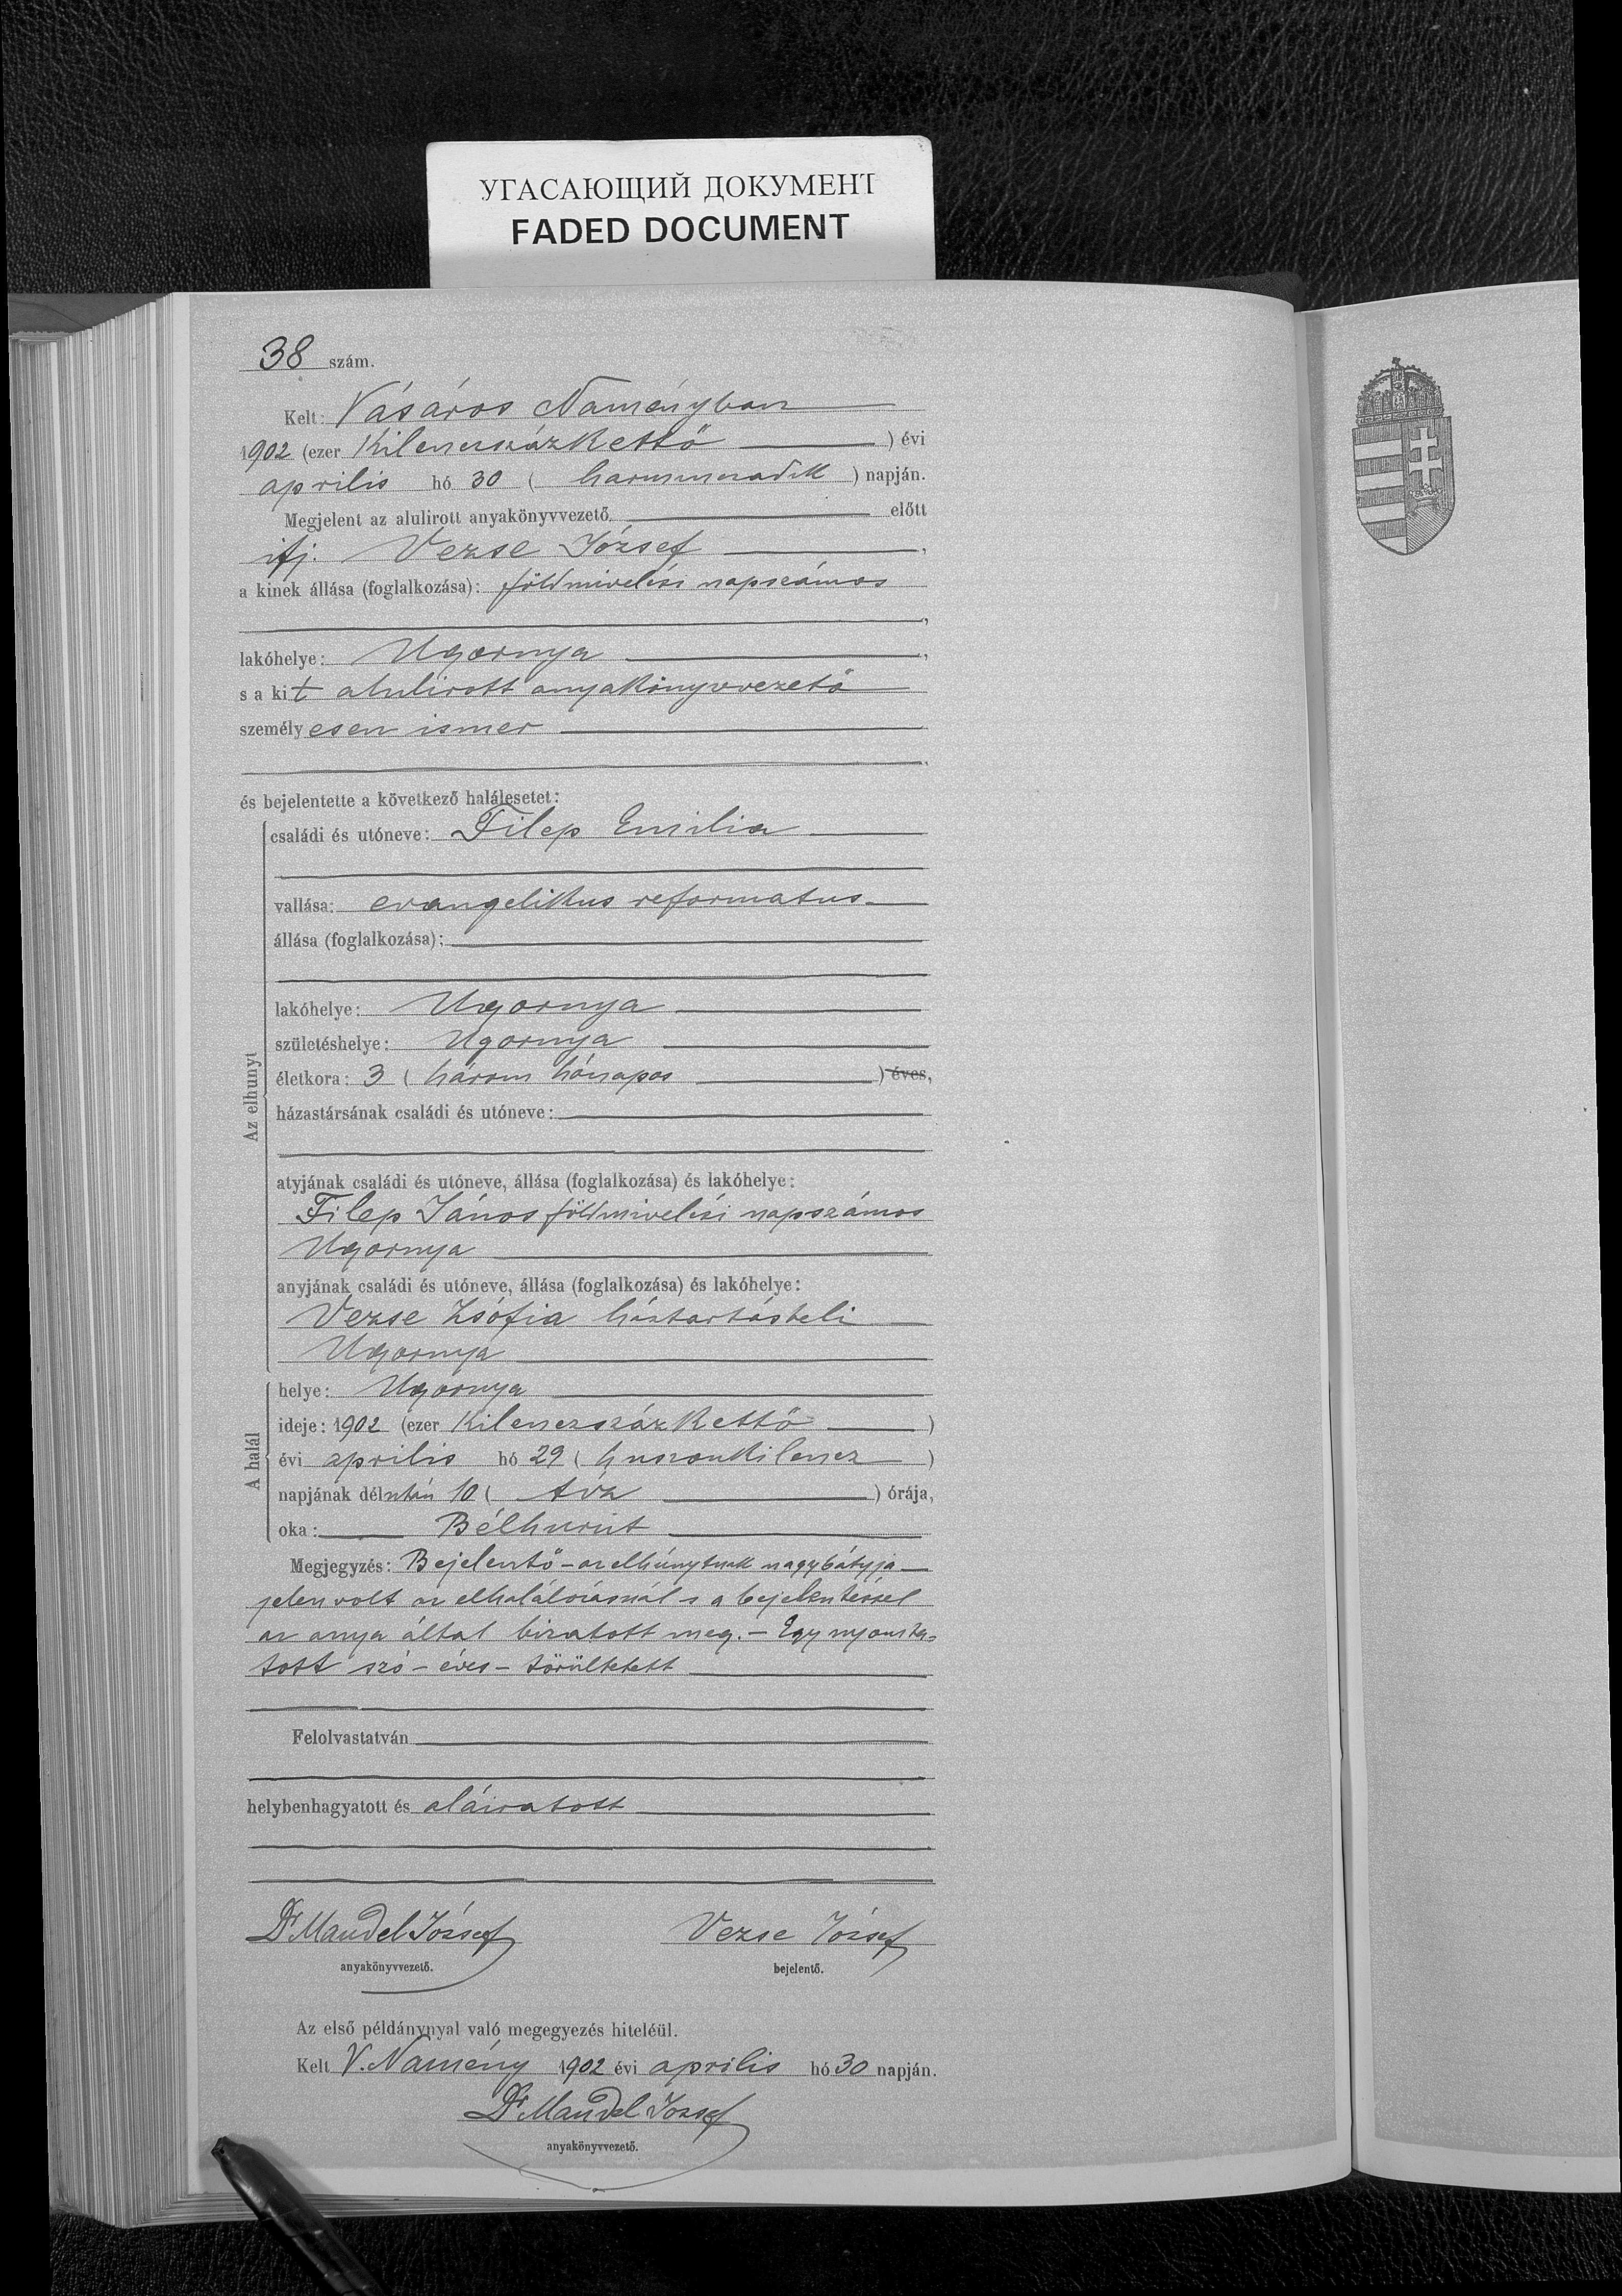 УГАСАЮЩИЙ ДОКУМЕНТ
FADED DOCUMENT
38 szám.
Kelt: Vásáros Naményban
1902 (ezer kilenczszázkettő ) évi
aprilis hó 30 ( harminczadik ) napján.
Megjelent az alulirott anyakönyvvezető előtt
ifj. Vezse József ,
a kinek állása (foglalkozása): földmivelési napszámos
,
lakóhelye: Ugornya ,
s a kit alulirott anyakönyvvezető
személyesen ismer
,
és bejelentette a következő halálesetet:
Az elhunyt
családi és utóneve: Filep Emilia
vallása: evangelikus reformatus
állása (foglalkozása):
lakóhelye: Ugornya
születéshelye: Ugornya
életkora: 3 ( három hónapos ) éves,
házastársának családi és utóneve:
atyjának családi és utóneve, állása (foglalkozása) és lakóhelye:
Filep János földmivelési napszámos
Ugornya
anyjának családi és utóneve, állása (foglalkozása) és lakóhelye:
Vezse Zsófia háztartásbeli
Ugornya
A halál
helye: Ugornya
ideje: 1902 (ezer kilenczszázkettő )
évi aprilis hó 29 ( huszonkilencz )
napjának délután 10 ( tíz ) órája,
oka: Bélhurut
Megjegyzés: Bejelentő - az elhúnytnak nagybátyja
jelen volt az elhalálozásnál s a bejelentéssel
az anya által bizatott meg. - Egy nyomta=
tott szó - éves - töröltetett
Felolvastatván
helybenhagyatott és aláiratott
Dr Mandel József
anyakönyvvezető.
Vezse József
bejelentő.
Az első példánynyal való megegyezés hiteléül.
Kelt V. Namény 1902 évi aprilis hó 30 napján.
Dr Mandel József
anyakönyvvezető.